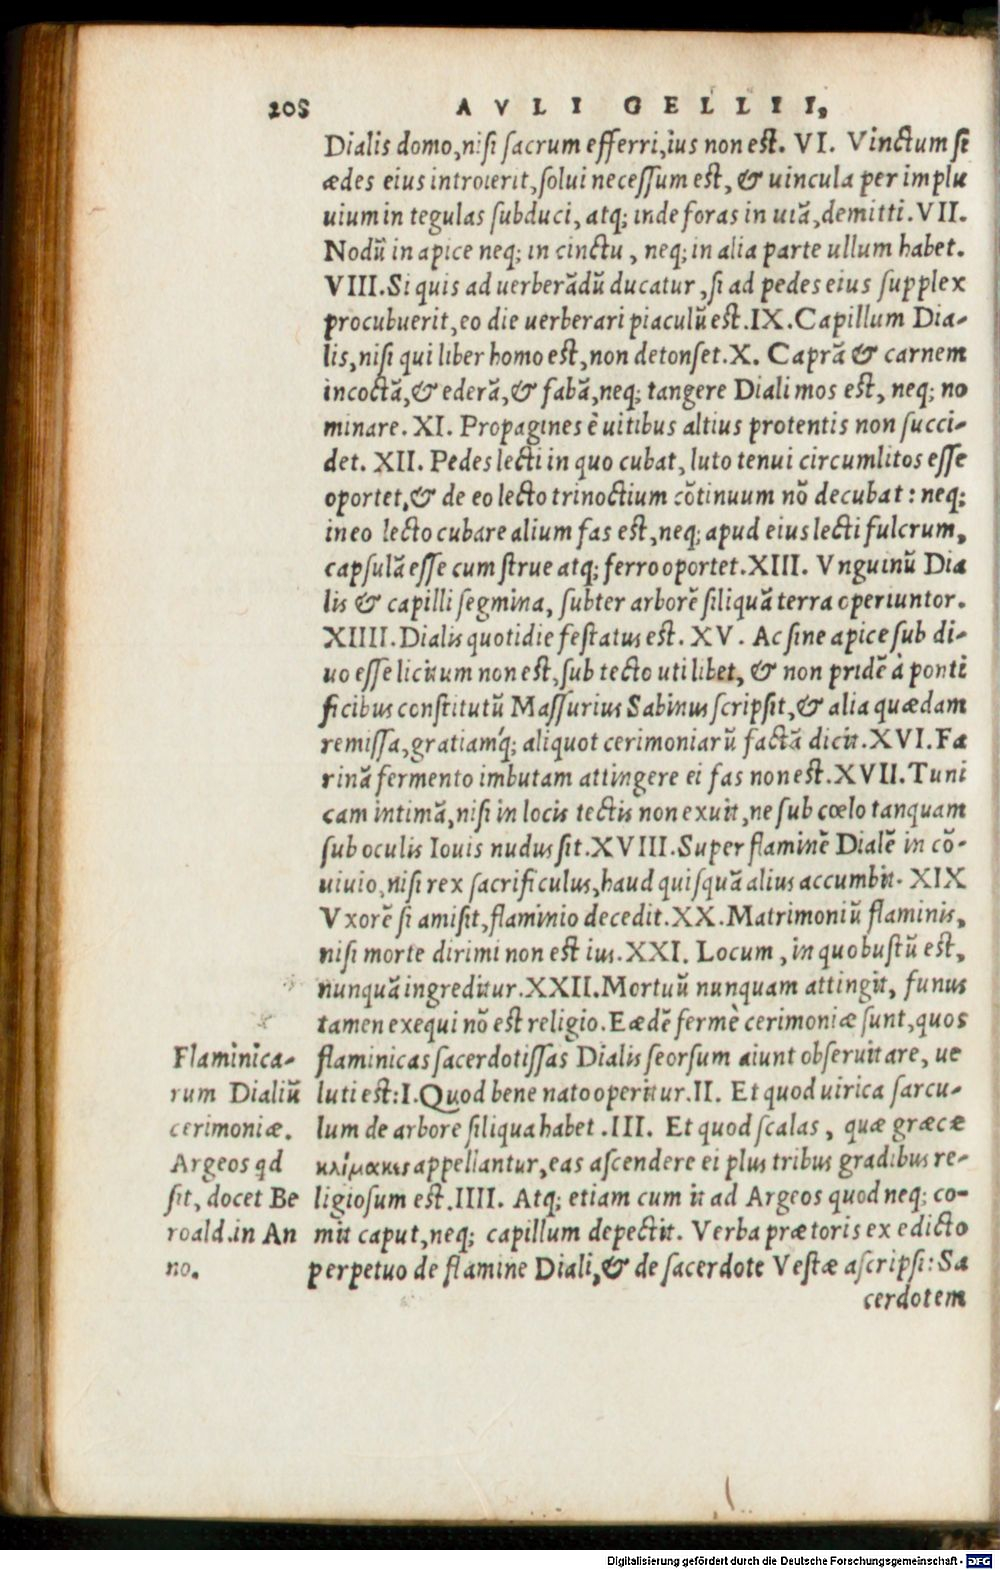 208 AVLI GELLII,
Dialis domo, nisi sacrum efferri, ius non est. VI. Vinctum si
ædes eius introierit, solui necessum est, & uincula per implu
uium in tegulas subduci, atq; inde foras in uiã, demitti. VII.
Nodũ in apice neq; in cinctu, neq; in alia parte ullum habet.
VIII. Si quis ad uerberãdũ ducatur, si ad pedes eius supplex
procubuerit, eo die uerberari piaculũ est. IX. Capillum Dia-
lis, nisi qui liber homo est, non detonset. X. Caprã & carnem
incoctã, & ederã, & fabã, neq; tangere Diali mos est, neq; no
minare. XI. Propagines è uitibus altius protentis non succi-
det. XII. Pedes lecti in quo cubat, luto tenui circumlitos esse
oportet, & de eo lecto trinoctium cõtinuum nõ decubat: neq;
in eo lecto cubare alium fas est, neq; apud eius lecti fulcrum,
capsulã esse cum strue atq; ferro oportet. XIII. Vnguinũ Dia
lis & capilli segmina, subter arborẽ siliquã terra operiuntor.
XIIII. Dialis quotidie festatus est. XV. Ac sine apice sub di-
uo esse licitum non est, sub tecto uti libet, & non pridẽ à ponti
ficibus constitutũ Massurius Sabinus scripsit, & alia quædam
remissa, gratiamq́; aliquot cerimoniarũ factã dicit. XVI. Fa
rinã fermento imbutam attingere ei fas non est. XVII. Tuni
cam intimã, nisi in locis tectis non exuit, ne sub cœlo tanquam
sub oculis Iouis nudus sit. XVIII. Super flaminẽ Dialẽ in cõ-
uiuio, nisi rex sacrificulus, haud quisquã alius accumbit. XIX
Vxorẽ si amisit, flaminio decedit. XX. Matrimoniũ flaminis,
nisi morte dirimi non est ius. XXI. Locum, in quo bustũ est,
nunquã ingreditur. XXII. Mortuũ nunquam attingit, funus
tamen exequi nõ est religio. Eædẽ fermè cerimoniæ sunt, quos
flaminicas sacerdotissas Dialis seorsum aiunt obseruitare, ue
luti est: I. Quod bene nato operitur. II. Et quod uirica sarcu-
lum de arbore siliqua habet. III. Et quod scalas, quæ græcæ
κλίμακες appellantur, eas ascendere ei plus tribus gradibus re-
ligiosum est. IIII. Atq; etiam cum it ad Argeos quod neq; co-
mit caput, neq; capillum depectit. Verba prætoris ex edicto
perpetuo de flamine Diali, & de sacerdote Vestæ ascripsi: Sa
cerdotem
Flaminica-
rum Dialiũ
cerimoniæ.
Argeos qd
sit, docet Be
roald. in An
no.
Digitalisierung gefördert durch die Deutsche Forschungsgemeinschaft - DFG